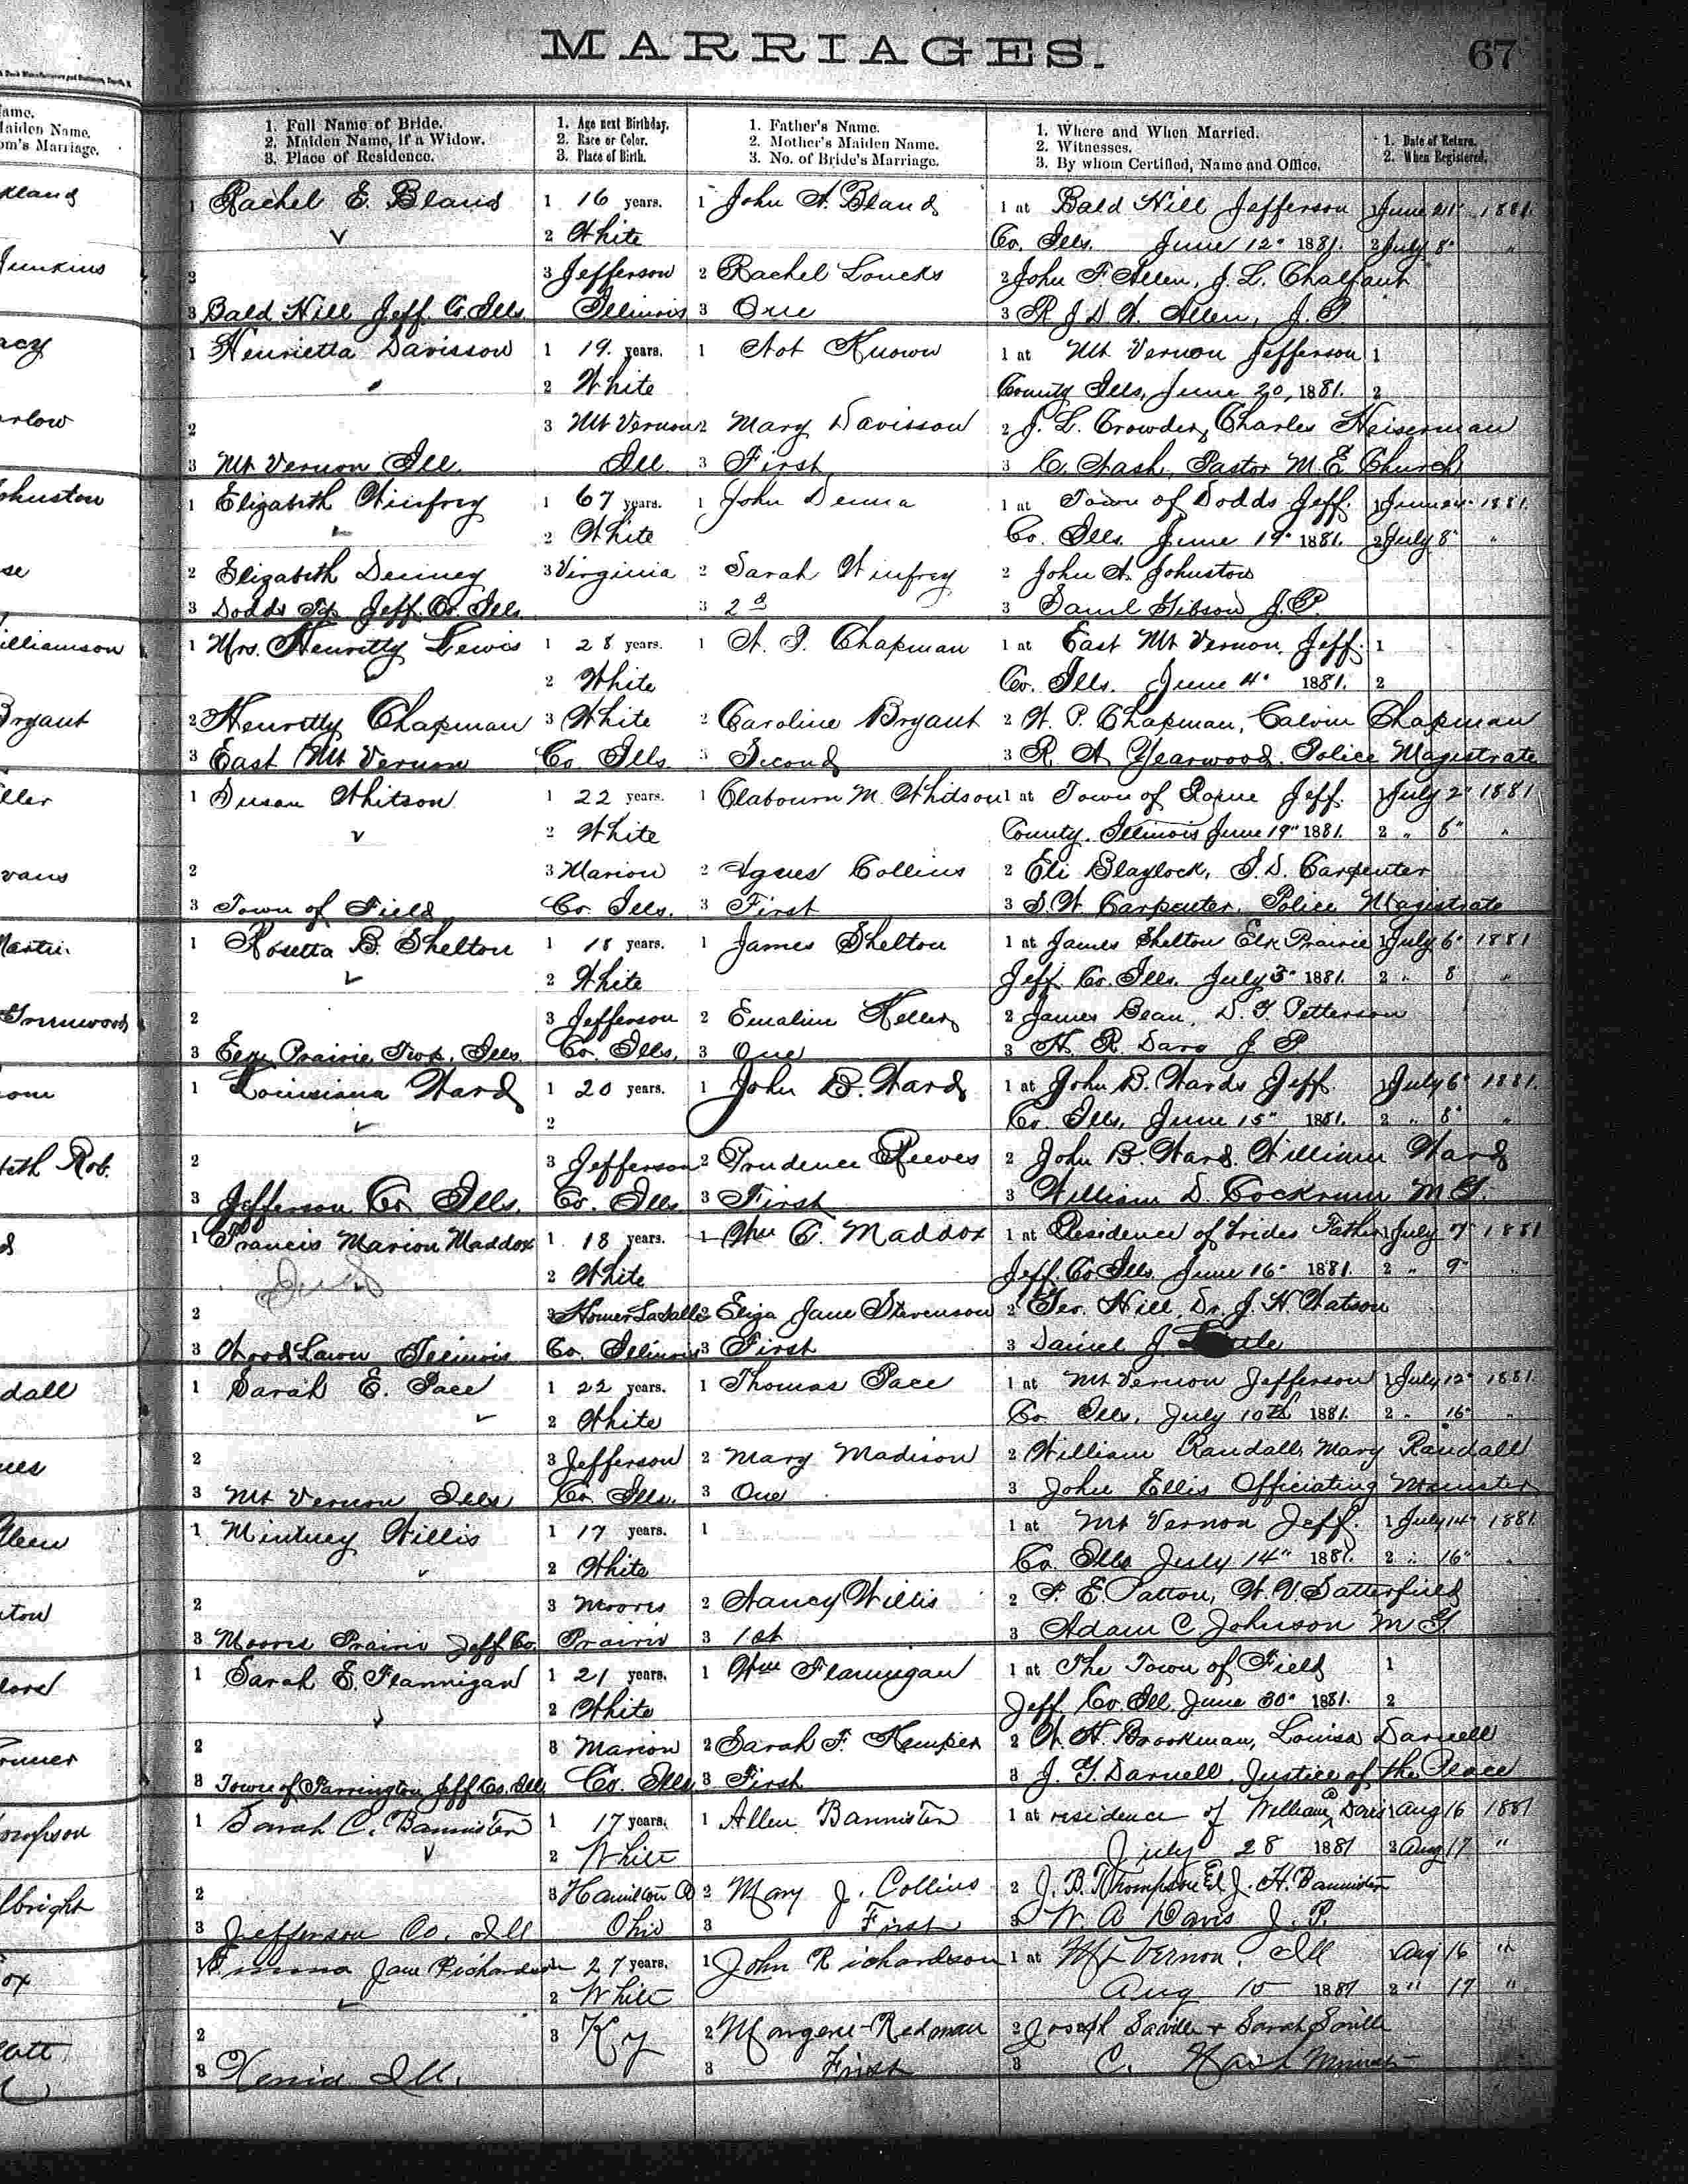 MARRIAGES.
67
ame.
aiden Name.
om's Marriage.
1. Full Name of Bride.
2. Maiden Name, if a Widow.
3. Place of Residence.
1. Age next Birthday.
2. Race or Color.
3. Place of Birth.
1. Father's Name.
2. Mother's Maiden Name.
3. No. of Bride's Marriage.
1. Where and When Married.
2. Witnesses.
3. By whom Certified, Name and Office.
1. Date of Return.
2. When Registered.
1 Rachel E. Bland 1 16 years. 1 John A. Bland 1 at Bald Hill Jefferson 1 June 21" 1881.
2 White Co. Ills. June 12" 1881. 2 July 8" "
2 3 Jefferson 2 Rachel Loucks 2 John F. Allen, J. L. Chalfant
3 Bald Hill Jeff. Co. Ills. Illinois 3 One 3 R J D W. Allen, J. P.
1 Henrietta Davisson 1 19. years. 1 Not Known 1 at Mt Vernon Jefferson 1
2 White County Ills, June 20, 1881. 2
2 3 Mt Vernon 2 Mary Davisson 2 J. L. Crowder, Charles Heiserman
3 Mt Vernon Ill. Ill 3 First 3 C. Nash, Pastor M. E. Church
1 Elizabeth Winfrey 1 67 years. 1 John Denna 1 at Town of Dodds Jeff. 1 June 24" 1881.
2 White Co. Ills. June 19" 1881. 2 July 8" "
2 Elizabeth Denney 3 Virginia 2 Sarah Winfrey 2 John A. Johnston
3 Dodds Tp. Jeff. Co. Ills. 3 2d 3 Saml Gibson J. P.
1 Mrs. Henritty Lewis 1 28 years. 1 N. P. Chapman 1 at East Mt Vernon, Jeff. 1
2 White Co. Ills. June 4" 1881. 2
2 Henritty Chapman 3 White 2 Caroline Bryant 2 W. P. Chapman, Calvin Chapman
3 East Mt Vernon Co. Ills. 3 Second 3 R. A. Yearwood. Police Magistrate
1 Susan Whitson 1 22 years. 1 Clabourn M. Whitson 1 at Town of Rome Jeff. 1 July 2" 1881
2 White County. Illinois June 19" 1881. 2 " 8" "
2 3 Marion 2 Agnes Collins 2 Eli Blaylock, S. D. Carpenter
3 Town of Field Co. Ills. 3 First 3 S. W. Carpenter, Police Magistrate
1 Rosetta B. Shelton 1 18 years. 1 James Shelton 1 at James Shelton Elk Prairie 1 July 6" 1881
2 White Jeff. Co. Ills. July 3" 1881. 2 " 8 "
2 3 Jefferson 2 Emaline Keller 2 James Bean, D. T. Petterson
3 Elk Prairie Twp. Ills. Co. Ills, 3 One 3 H. R. Dare J P
1 Louisiana Ward 1 20 years. 1 John B. Ward 1 at John B. Wards Jeff. 1 July 6" 1881.
2 Co. Ills, June 15" 1881. 2 " 8" "
2 3 Jefferson 2 Prudence Reeves 2 John B. Ward. William Ward
3 Jefferson Co. Ills. Co. Ills 3 First 3 William D. Cockrum M G.
1 Francis Marion Maddox 1 18 years. 1 Wm C. Maddox 1 at Residence of brides Father 1 July 7" 1881
2 White Jeff. Co Ills. June 16" 1881. 2 " 9" "
2 3 Homer LaSalle 2 Eliza Jane Stevenson 2 Geo. Hill, Dr. J. H. Watson
3 Wood Lawn Illinois Co. Illinois 3 First 3 Daniel J.
1 Sarah E. Pace 1 22 years. 1 Thomas Pace 1 at Mt Vernon Jefferson 1 July 12" 1881
2 White Co. Ills, July 10th 1881. 2 " 16" "
2 3 Jefferson 2 Mary Madison 2 William Randall, Mary Randall
3 Mt Vernon Ills Co. Ills. 3 One 3 John Ellis Officiating Minister
1 Mintney Willis 1 17 years. 1 1 at Mt Vernon Jeff. 1 July 14" 1881.
2 White Co. Ills July 14" 1881. 2 " 16" "
2 3 Moores 2 Nancy Willis 2 F. E. Patton, W. V. Satterfield
3 Moores Prairie Jeff Co. Prairie 3 1st 3 Adam C. Johnson M G
1 Sarah E. Flannigan 1 21 years. 1 Wm Flannigan 1 at The Town of Field 1
2 White Jeff. Co. Ill. June 30" 1881. 2
2 3 Marion 2 Sarah F. Kemper 2 W. H. Brookman, Louisa Darnell
3 Town of Farrington Jeff Co. Ills Co. Ills. 3 First 3 J. G. Darnell, Justice of the Peace
1 Sarah C. Bannister 1 17 years. 1 Allen Bannister 1 at residence of William Davis 1 Aug 16 1881
2 White July 28 1881 2 Aug 17 "
2 3 Hamilton Co 2 Mary J. Collins 2 J. B. Thompson J. H. Bannister
3 Jefferson Co. Ill Ohio 3 First 3 W. A Davis J. P.
1 Emma Jane Richardson 1 27 years. 1 John Richardson 1 at Mt Vernon, Ill 1 Aug 16 "
2 White Aug 15 1881 2 " 17 "
2 3 Ky 2 Redman 2 Joseph Saville + Sarah Saville
3 Xenia Ill. 3 First 3 C. Nash